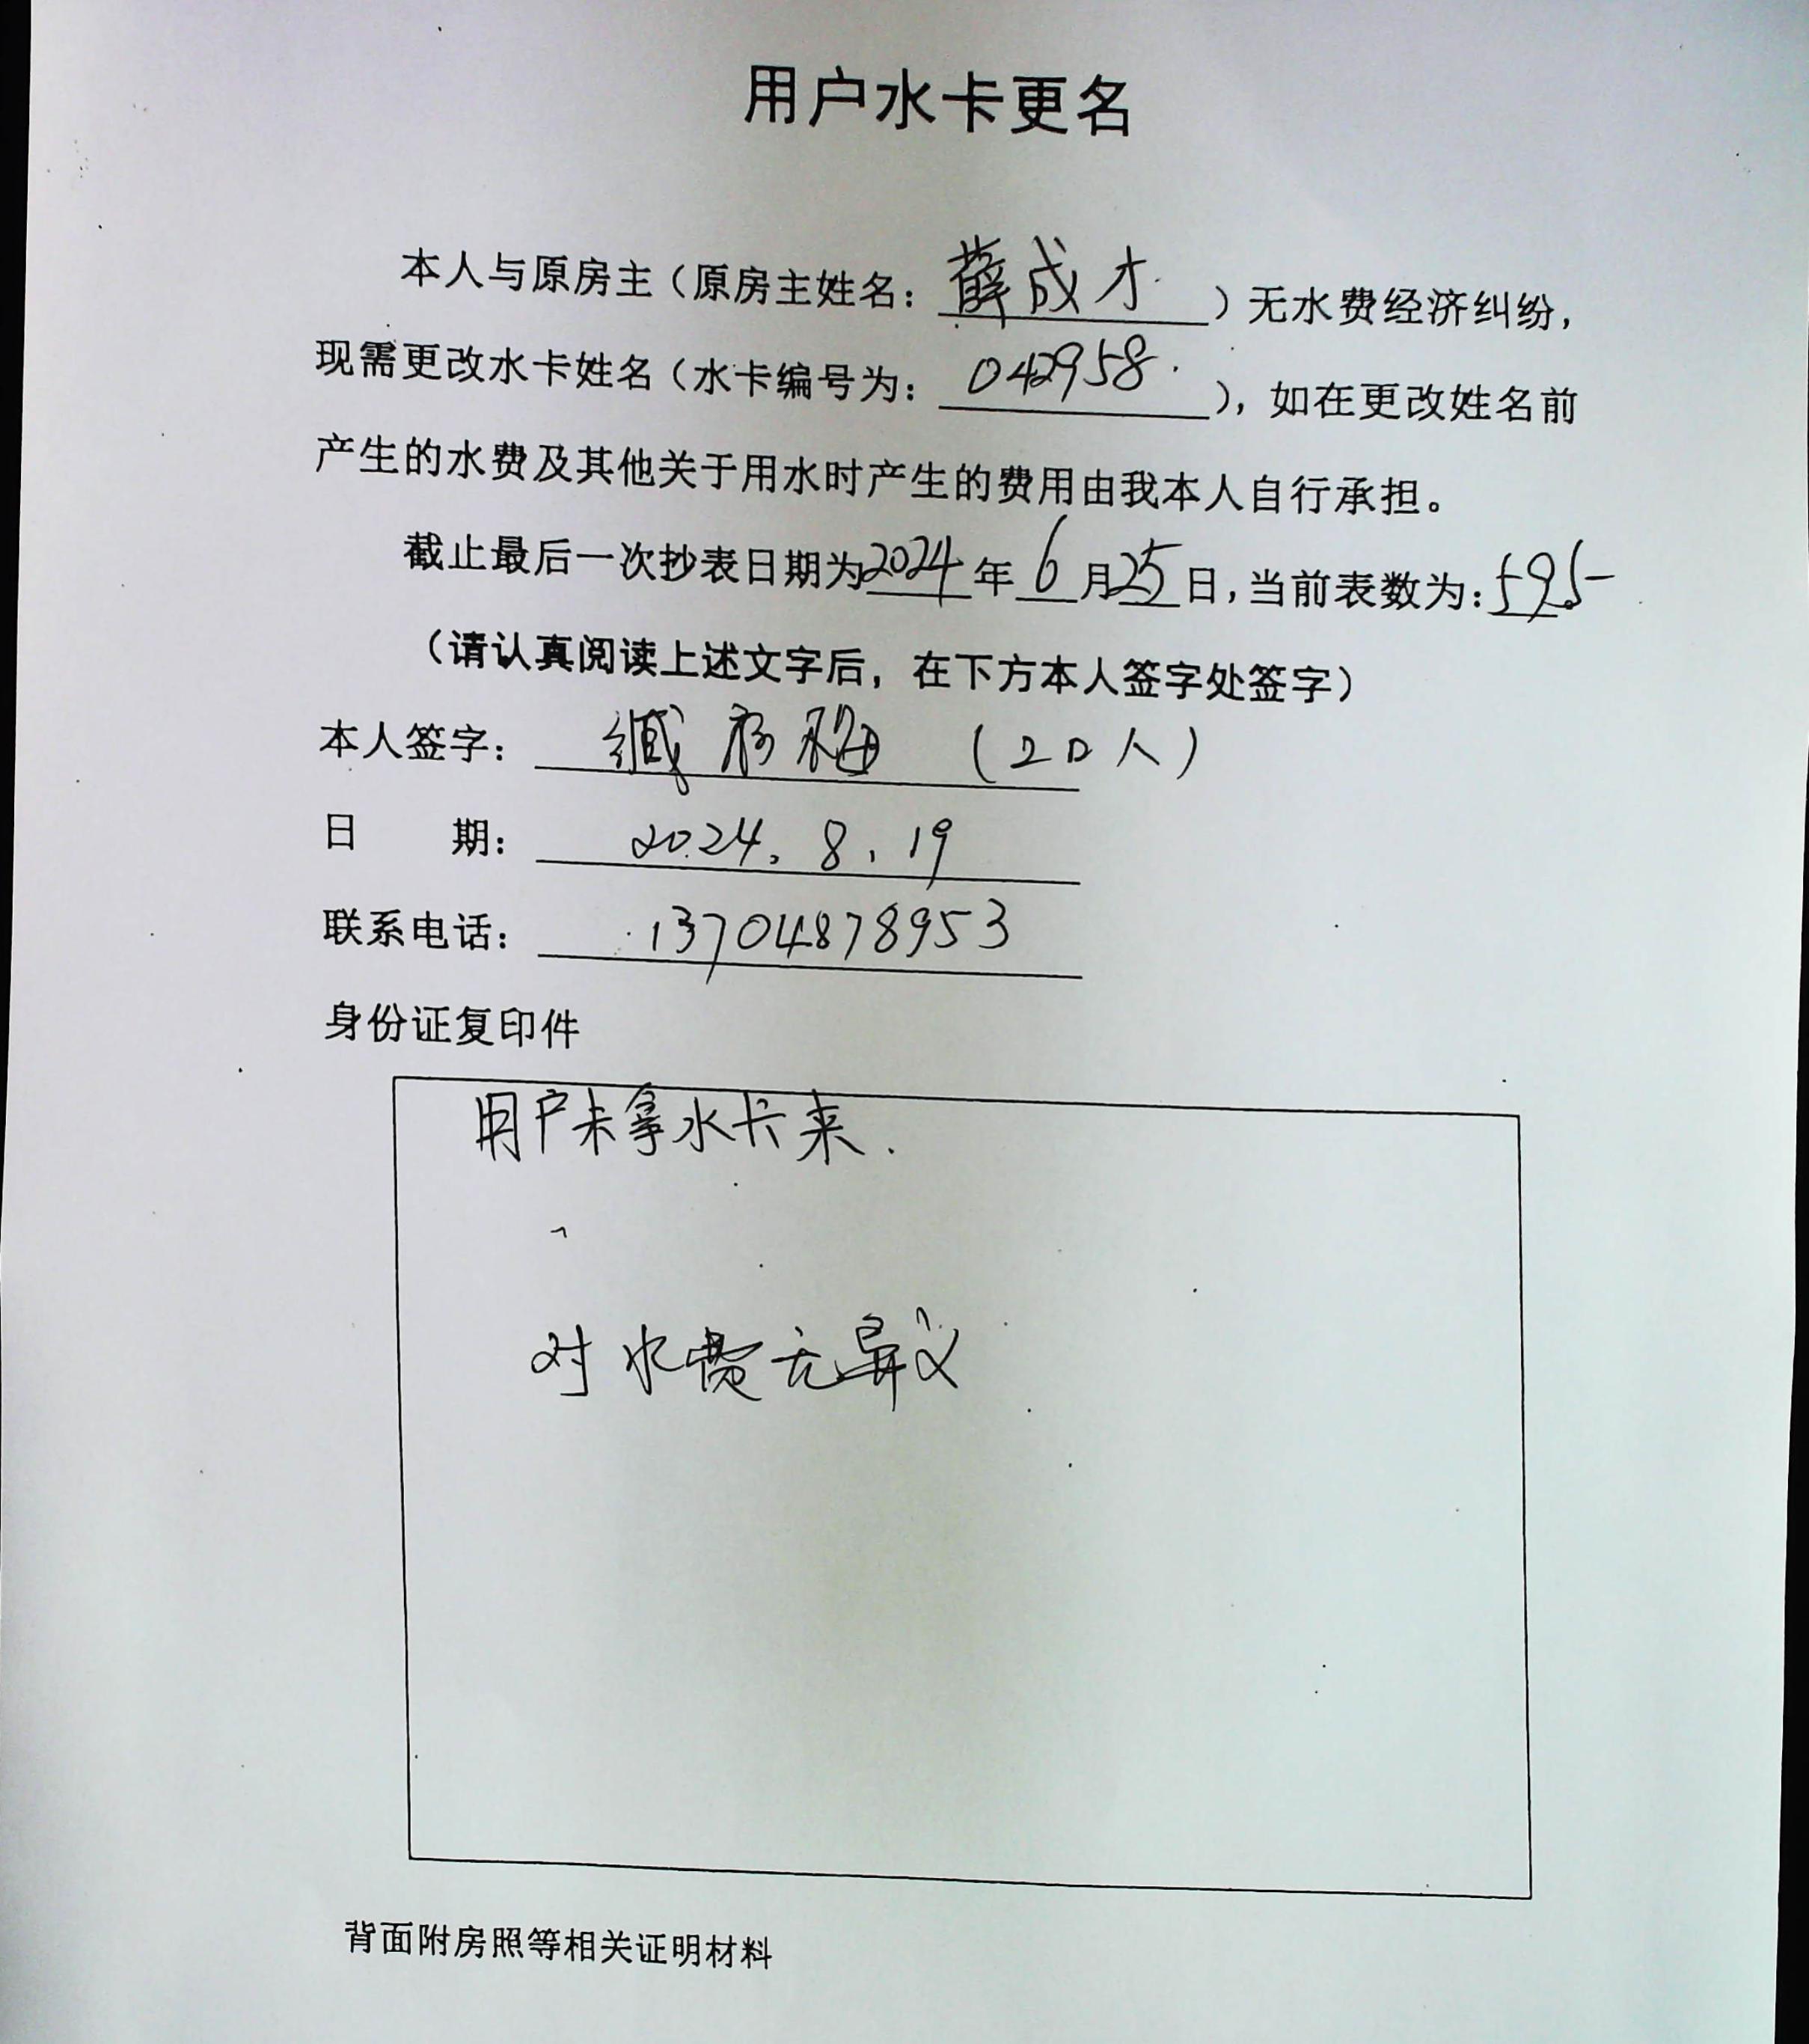 用户水卡更名
本人与原房主（原房主姓名：薛成才）无水费经济纠纷，
现需更改水卡姓名（水卡编号为：042958），如在更改姓名前
产生的水费及其他关于用水时产生的费用由我本人自行承担。
截止最后一次抄表日期为2024年6月25日，当前表数为：595
（请认真阅读上述文字后，在下方本人签字处签字）
本人签字：（2口人）
日 期：2024.8.19
联系电话：13704878953
身份证复印件
用户未拿水卡来.
对水费无异议
背面附房照等相关证明材料